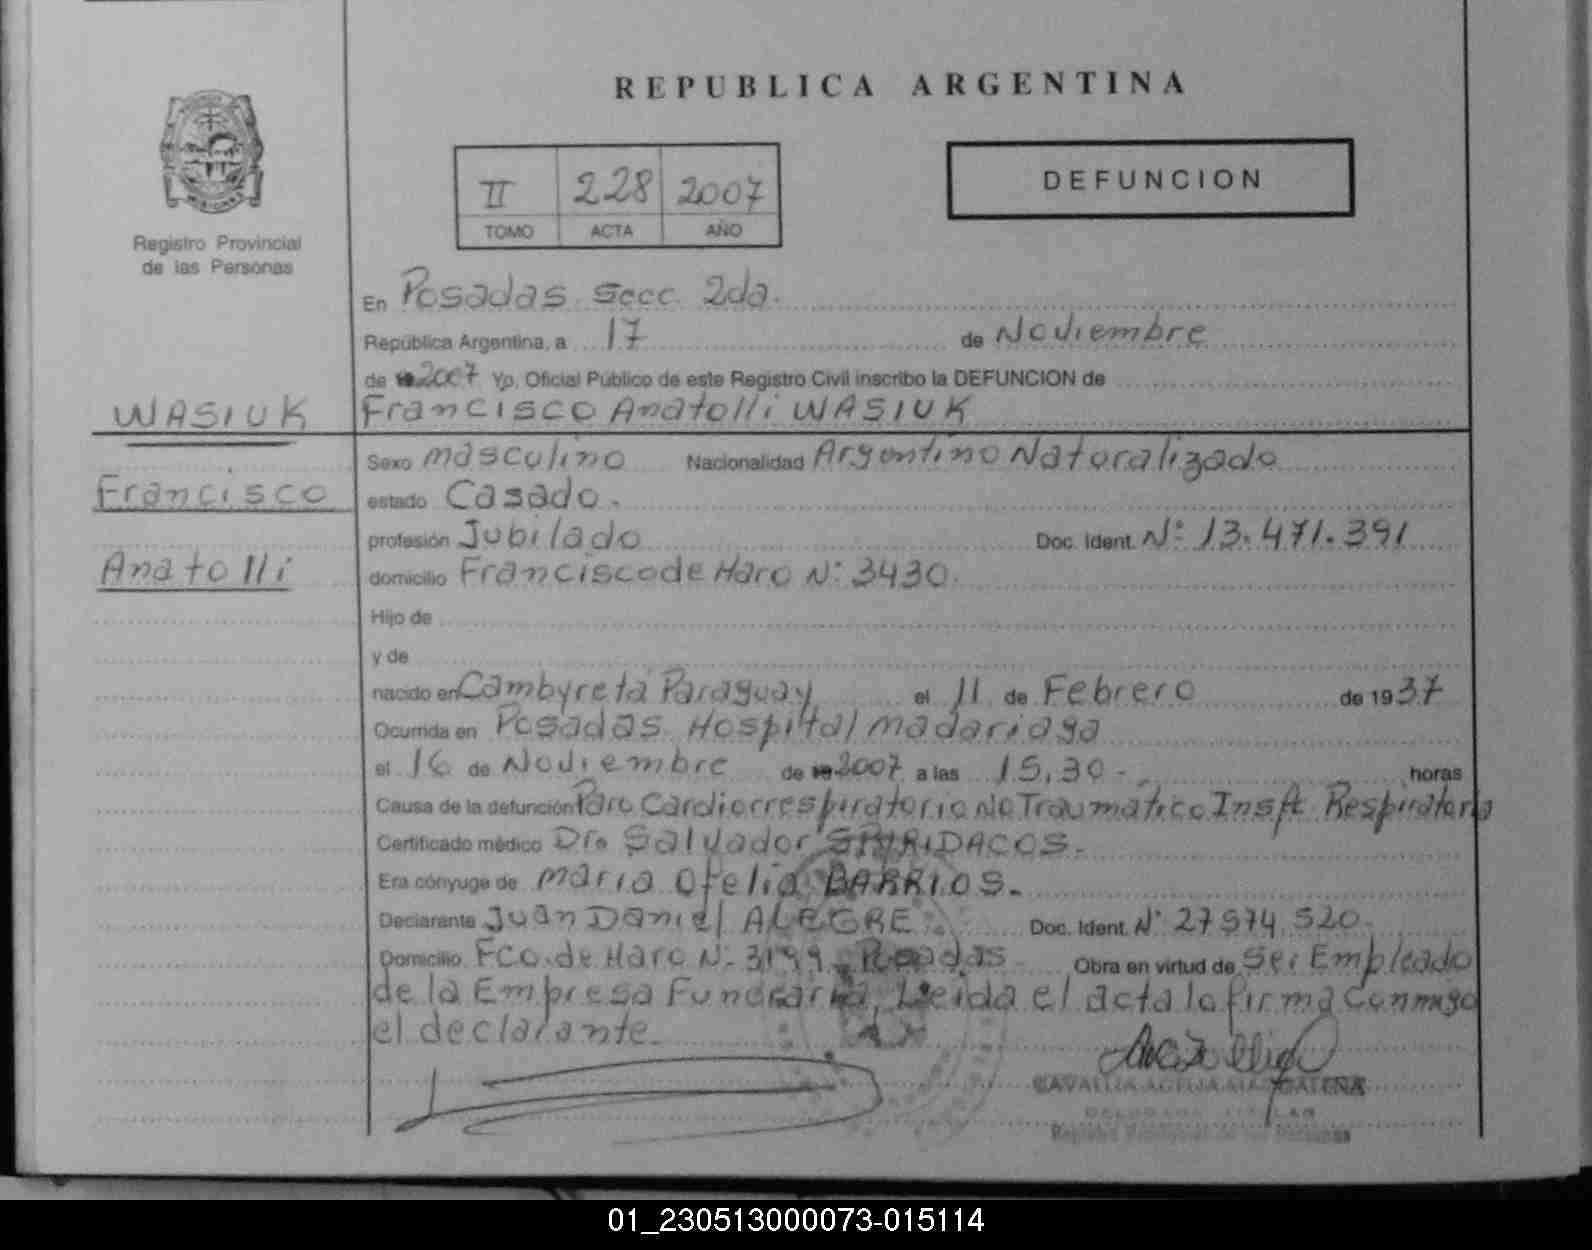 REPUBLICA ARGENTINA
II 228 2007
TOMO ACTA AÑO
DEFUNCION
Registro Provincial
de las Personas
En Posadas Secc 2da.
República Argentina, a 17 de Noviembre
de 2007 Yo, Oficial Público de este Registro Civil inscribo la DEFUNCION de
WASIUK
Francisco Anatolli WASIUK
Francisco
Anatolli
Sexo Masculino Nacionalidad Argentino Naturalizado
estado Casado.
profesión Jubilado Doc. Ident. Nº 13.471.391
domicilio Francisco de Haro Nº 3430.
Hijo de
y de
nacido en Cambyreta Paraguay el 11 de Febrero de 1937
Ocurrida en Posadas Hospital Madariaga
el 16 de Noviembre de 2007 a las 15,30- horas
Causa de la defunción Paro Cardiorrespiratorio No Traumatico Insft Respiratoria
Certificado médico Dro Salvador SPYRIDACOS.
Era cónyuge de Maria Ofelia BARRIOS.
Declarante Juan Daniel ALEGRE Doc. Ident. Nº 27 574 520.
Domicilio Fco. de Haro Nº 3199 Posadas Obra en virtud de Ser Empleado
de la Empresa Funeraria, Leida el acta la firma Conmigo
el declarante.
Registro Provincial de las Personas
01_230513000073-015114